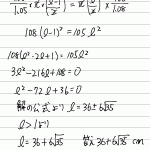 108(l-1)² = 105l²
108(l²-2l+1) = 105l²
3l²-216l+108=0
l²-72l+36=0
解の公式より l=36±6√35
l>1より
l=36+6√35 答え 36+6√35 cm